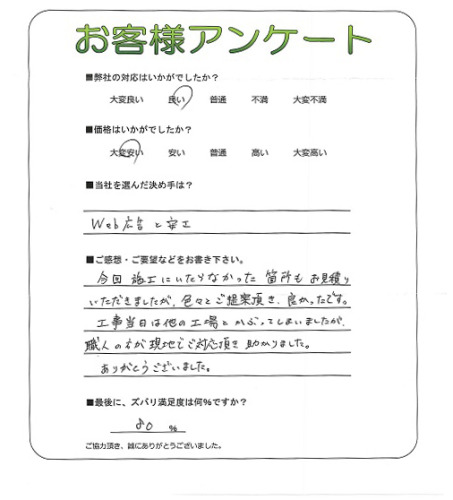 お客様アンケート
■弊社の対応はいかがでしたか?
大変良い 良い 普通 不満 大変不満
■価格はいかがでしたか?
大変安い 安い 普通 高い 大変高い
■当社を選んだ決め手は?
Web広告と
■ご感想・ご要望などをお書き下さい。
今回 施工にいたらなかった 箇所も お見積り
いただきましたが、色々とご提案頂き、良かったです。
工事当日は他の工場とかぶってしまいましたが、
職人の方が現地でご対応頂き 助かりました。
ありがとうございました。
■最後に、ズバリ満足度は何%ですか?
80 %
ご協力頂き、誠にありがとうございました。